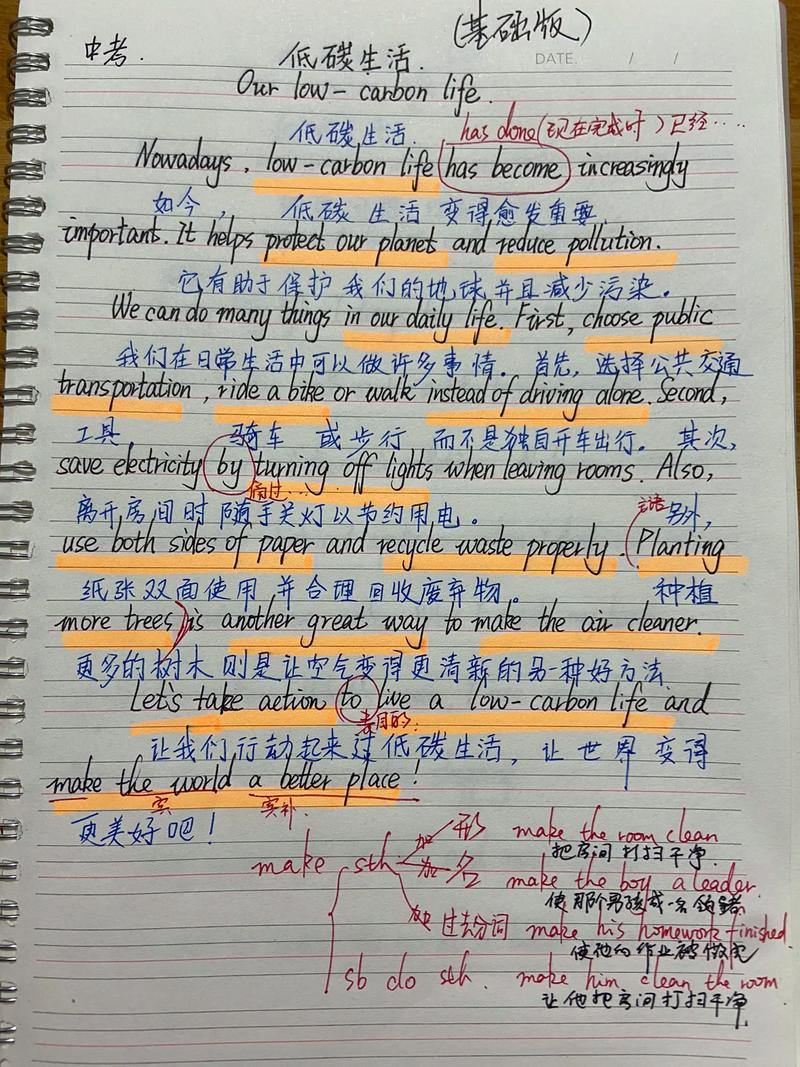 (基础版)
中考.
低碳生活.
DATE. / /
Our low-carbon life.
低碳生活. has done(现在完成时)已经....
Nowadays, low-carbon life has become increasingly
如今, 低碳 生活 变得愈发重要.
important. It helps protect our planet and reduce pollution.
它有助于保护我们的地球并且减少污染。
We can do many things in our daily life. First, choose public
我们在日常生活中可以做许多事情。首先,选择公共交通
transportation, ride a bike or walk instead of driving alone. Second,
工具, 骑车 或步行 而不是独自开车出行。其次,
save electricity by turning off lights when leaving rooms. Also,
通过...
离开房间时随手关灯以节约用电。 主语 另外,
use both sides of paper and recycle waste properly. (Planting
纸张双面使用并合理回收废弃物。 种植
more trees) is another great way to make the air cleaner.
更多的树木则是让空气变得更清新的另一种好方法
Let's take action to live a low-carbon life and
表目的:
让我们行动起来过低碳生活,让世界变得
make the world a better place!
宾 宾补.
更美好吧!
make sth 加 形 make the room clean
把房间打扫干净.
加 名 make the boy a leader.
使那个男孩成一名领导者
加 过去分词 make his homework finished.
使他的作业被做完
sb do sth. make him clean the room
让他把房间打扫干净.